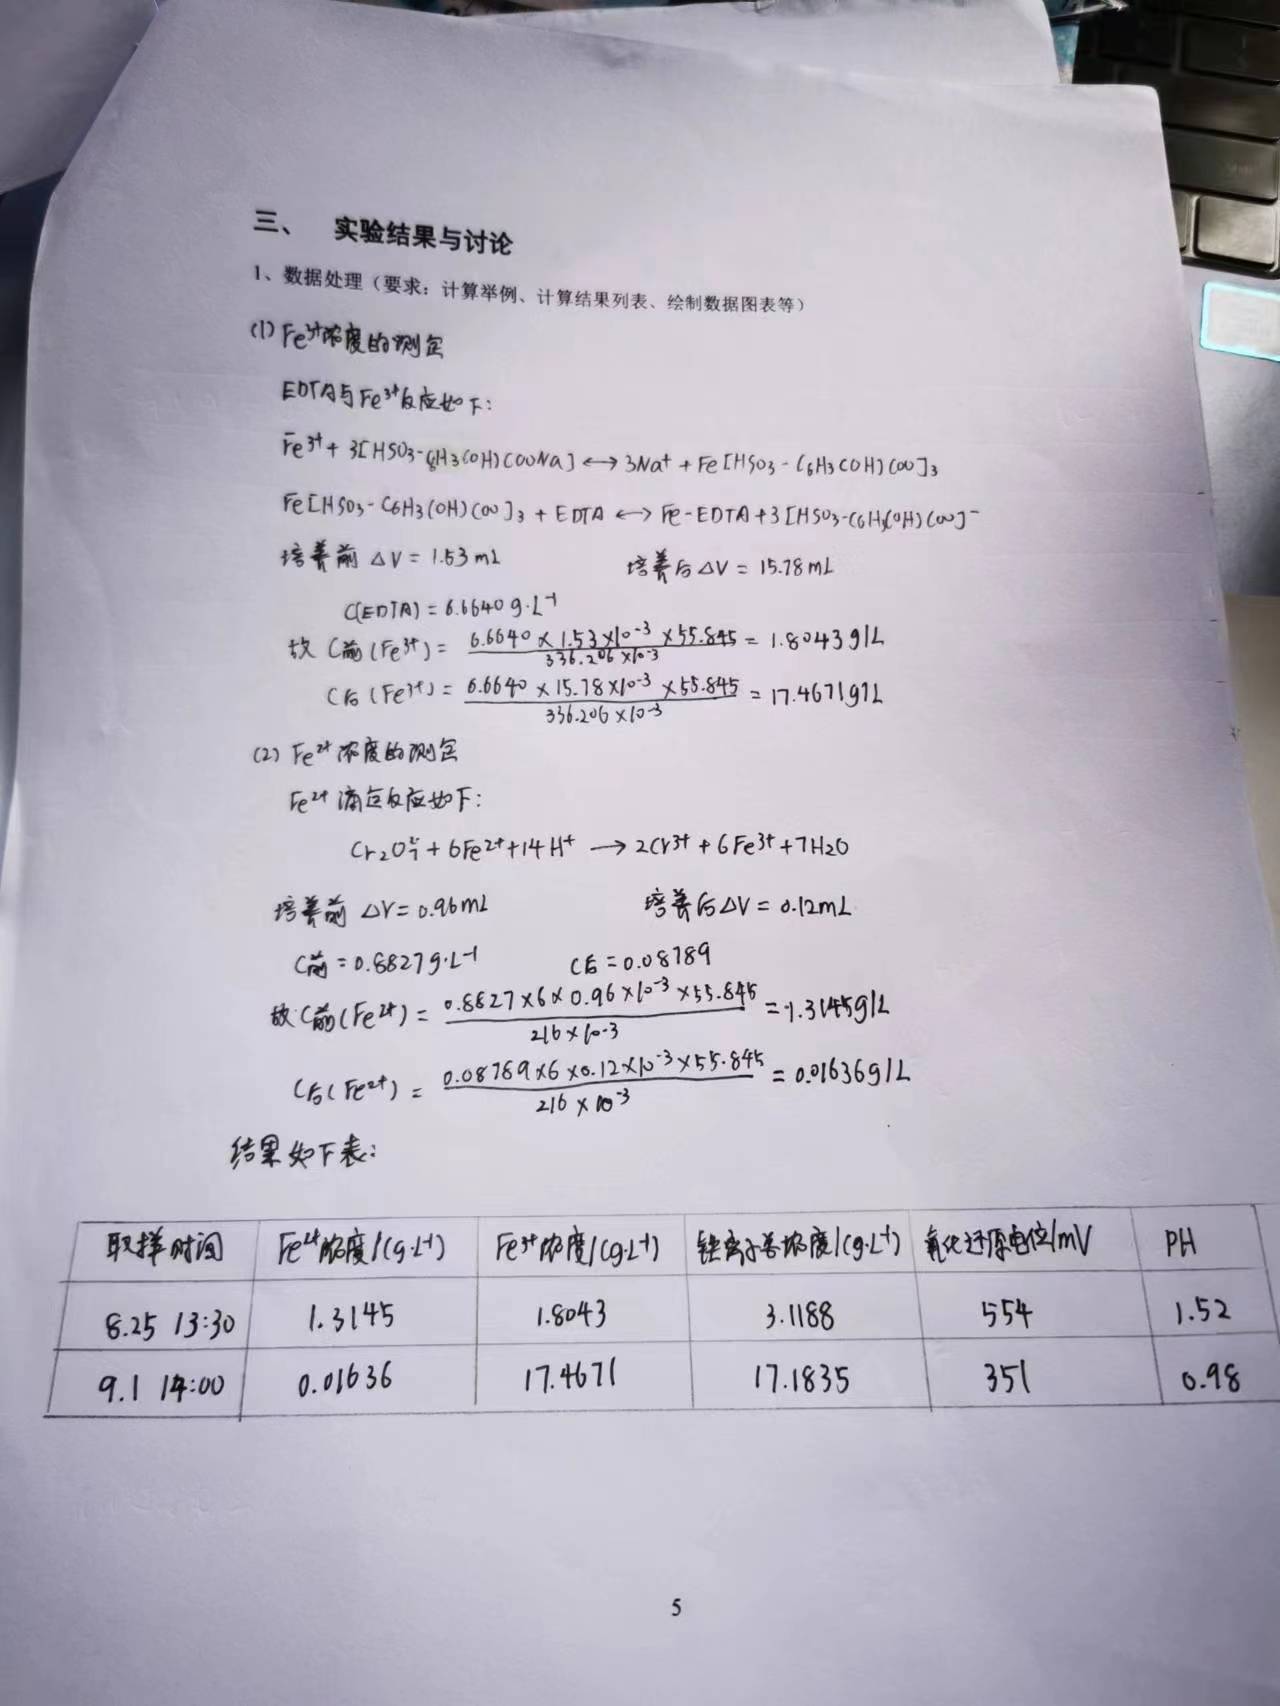 三、 实验结果与讨论
1、数据处理（要求：计算举例、计算结果列表、绘制数据图表等）
(1) Fe³⁺浓度的测定
EDTA与Fe³⁺反应如下：
Fe³⁺ + 3[HSO3-C6H3(OH)COONa] ⟷ 3Na⁺ + Fe[HSO3-C6H3(OH)COO]3
Fe[HSO3-C6H3(OH)COO]3 + EDTA ⟷ Fe-EDTA + 3[HSO3-C6H3(OH)COO]⁻
培养前 ΔV = 1.53mL 培养后 ΔV = 15.78mL
C(EDTA) = 6.6640g·L⁻¹
故 C前(Fe³⁺) = 6.6640×1.53×10⁻³×55.845 / 336.206×10⁻³ = 1.8043g/L
C后(Fe³⁺) = 6.6640×15.78×10⁻³×55.845 / 336.206×10⁻³ = 17.4671g/L
(2) Fe²⁺浓度的测定
Fe²⁺滴定反应如下：
Cr2O7²⁻ + 6Fe²⁺ + 14H⁺ → 2Cr³⁺ + 6Fe³⁺ + 7H2O
培养前 ΔV = 0.96mL 培养后ΔV = 0.12mL
C前 = 0.8827g·L⁻¹ C后 = 0.08789
故C前(Fe²⁺) = 0.8827×6×0.96×10⁻³×55.845 / 216×10⁻³ = 1.3145g/L
C后(Fe²⁺) = 0.08789×6×0.12×10⁻³×55.845 / 216×10⁻³ = 0.01636g/L
结果如下表：
取样时间 Fe²⁺浓度/(g·L⁻¹) Fe³⁺浓度/(g·L⁻¹) 铁离子总浓度/(g·L⁻¹) 氧化还原电位/mV PH
8.25 13:30 1.3145 1.8043 3.1188 554 1.52
9.1 14:00 0.01636 17.4671 17.1835 351 0.98
5